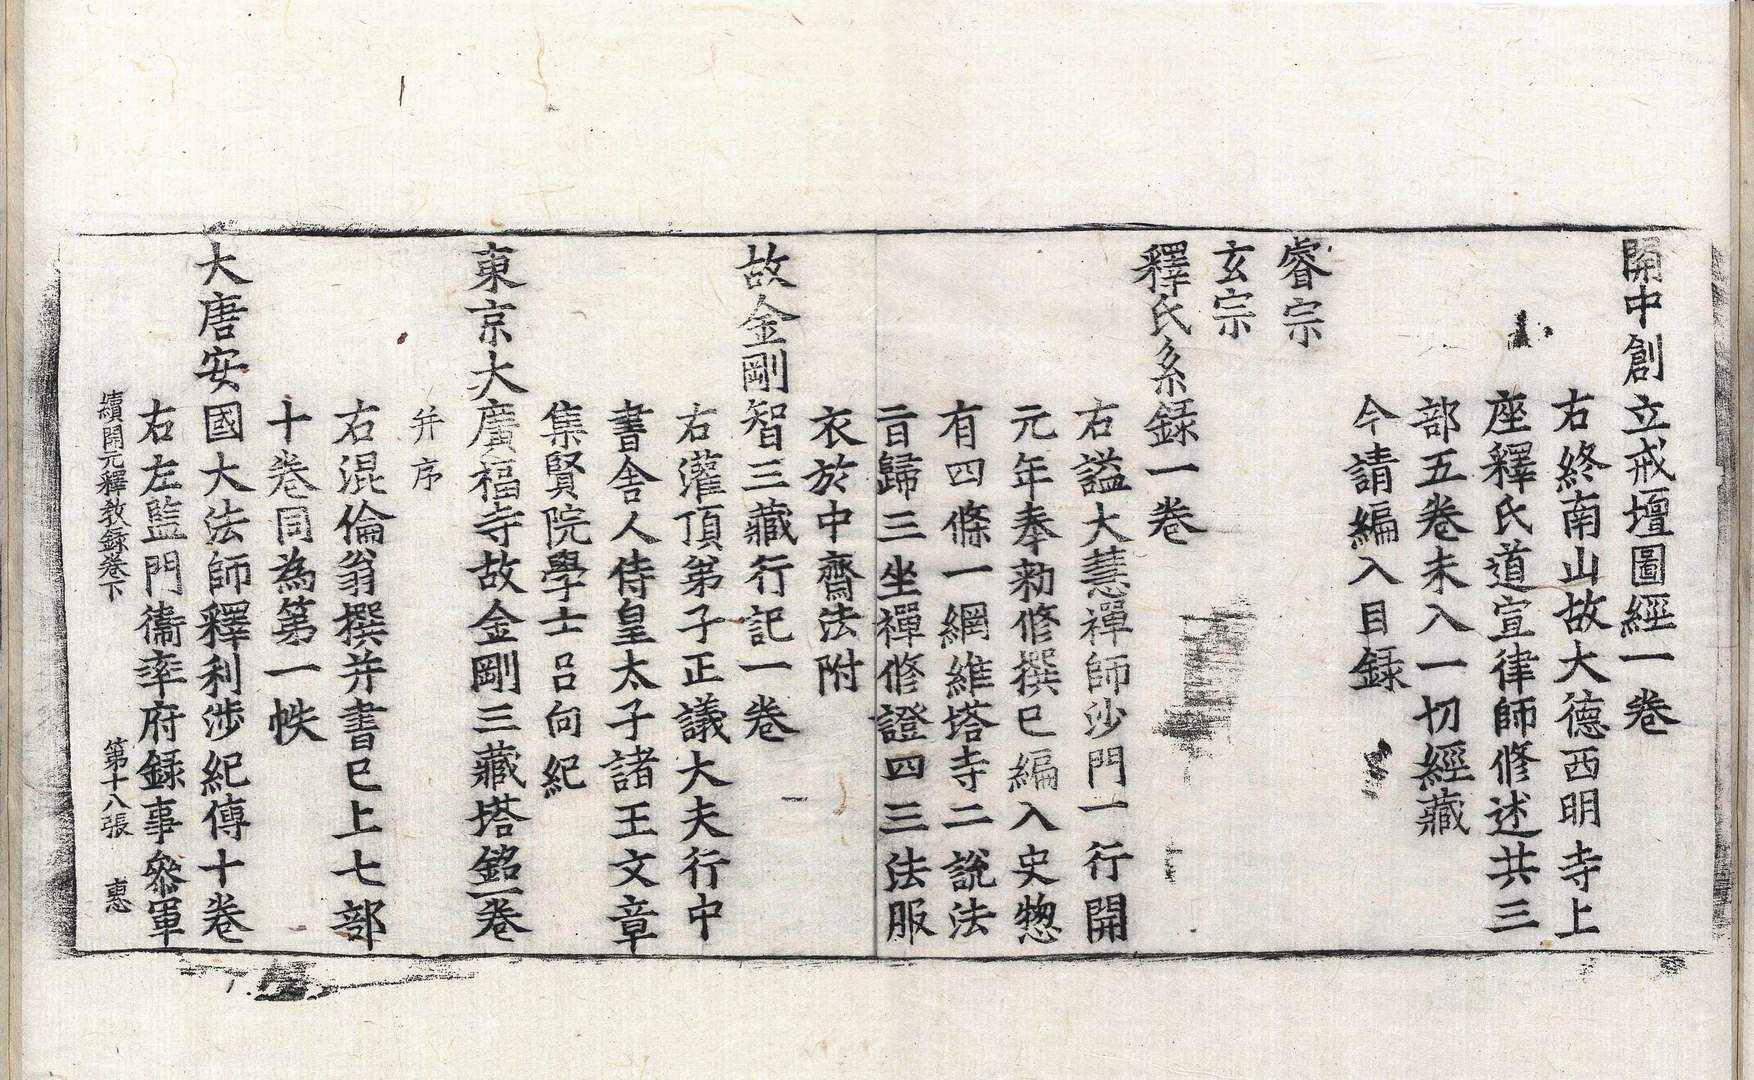 開中創立戒壇圖經一卷
右終南山故大德西明寺上
座釋氏道宣律師修述共三
部五卷未入一切經藏
今請編入目録
睿宗
玄宗
釋氏系録一卷
右謚大慧禪師沙門一行開
元年奉勑修撰已編入史惣
有四條一綱維塔寺二說法
旨歸三坐禪修證四三法服
衣於中齋法附
故金剛智三藏行記一卷
右灌頂弟子正議大夫行中
書舍人侍皇太子諸王文章
集賢院學士呂向紀
東京大廣福寺故金剛三藏塔銘一卷
并序
右混倫翁撰并書已上七部
十卷同為第一帙
大唐安國大法師釋利涉紀傳十卷
右左監門衞率府録事叅軍
續開元釋教録卷下 第十八張 惠